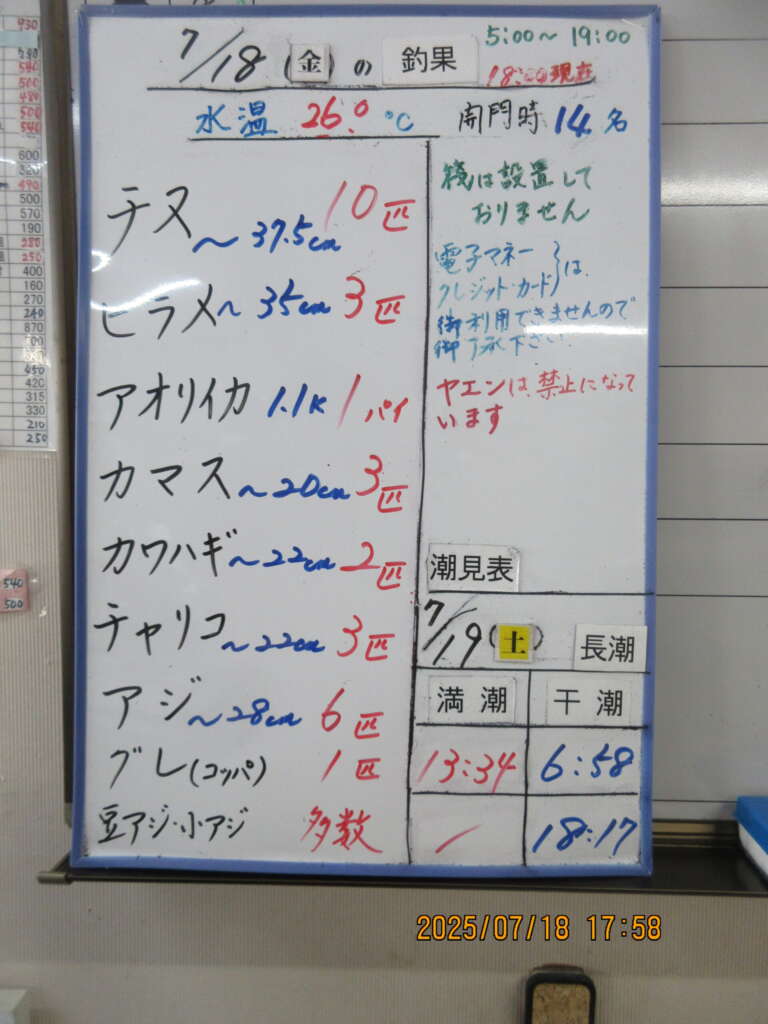 7/18(金)の 釣果
5:00～19:00
18:00現在
水温 26.0℃ 開門時 14名
チヌ ～37.5cm 10匹
ヒラメ～35cm 3匹
アオリイカ 1.1K 1パイ
カマス～20cm 3匹
カワハギ～22cm 2匹
チャリコ～22cm 3匹
アジ～28cm 6匹
グレ(コッパ) 1匹
豆アジ・小アジ 多数
筏は設置して
おりません
電子マネー
クレジット・カード}は
御利用できませんので
御了承下さい
ヤエンは、禁止になって
います
潮見表
7/19(土) 長潮
満潮 干潮
13:34 6:58
/ 18:17
2025/07/18 17:58
430
540
500
480
500
540
600
520
490
500
570
190
280
250
400
160
270
240
870
500
450
420
315
330
210
250
540
500